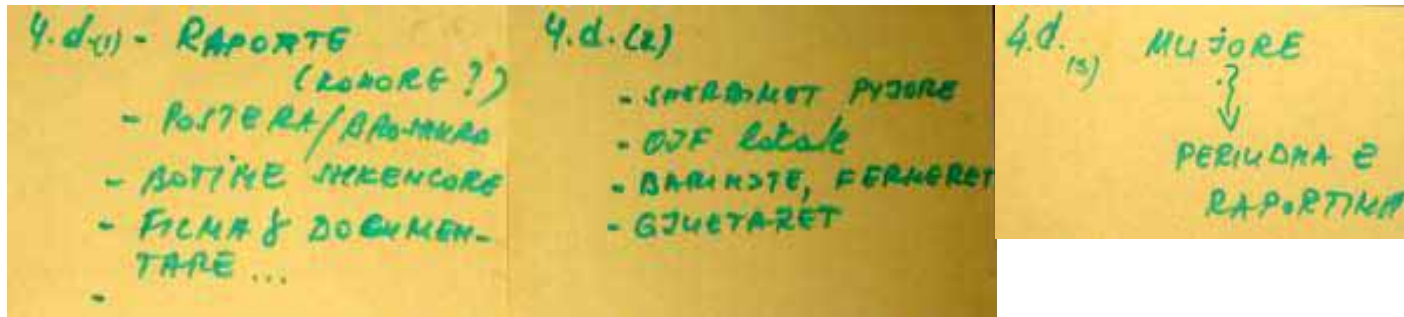 4.d.(1) - RAPORTE
(KOHORE ?)
- POSTERA/BROSHURA
- BOTIME SHKENCORE
- FILMA & DOCUMEN-
TARE ...
-
4.d.(2)
- SHERBIMET PYJORE
- OJF lokale
- BARINJTE, FERMERET
- GJUETARET
4.d.(3) MUJORE
?
PERIUDHA E
RAPORTIMIT